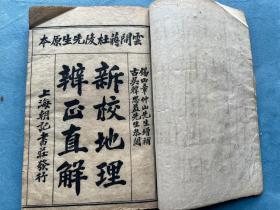 雲間蔣杜陵先生原本
錫山章仲山先生增補
古吳先生參閱
新校地理
辨正直解
上海朝記書莊發行